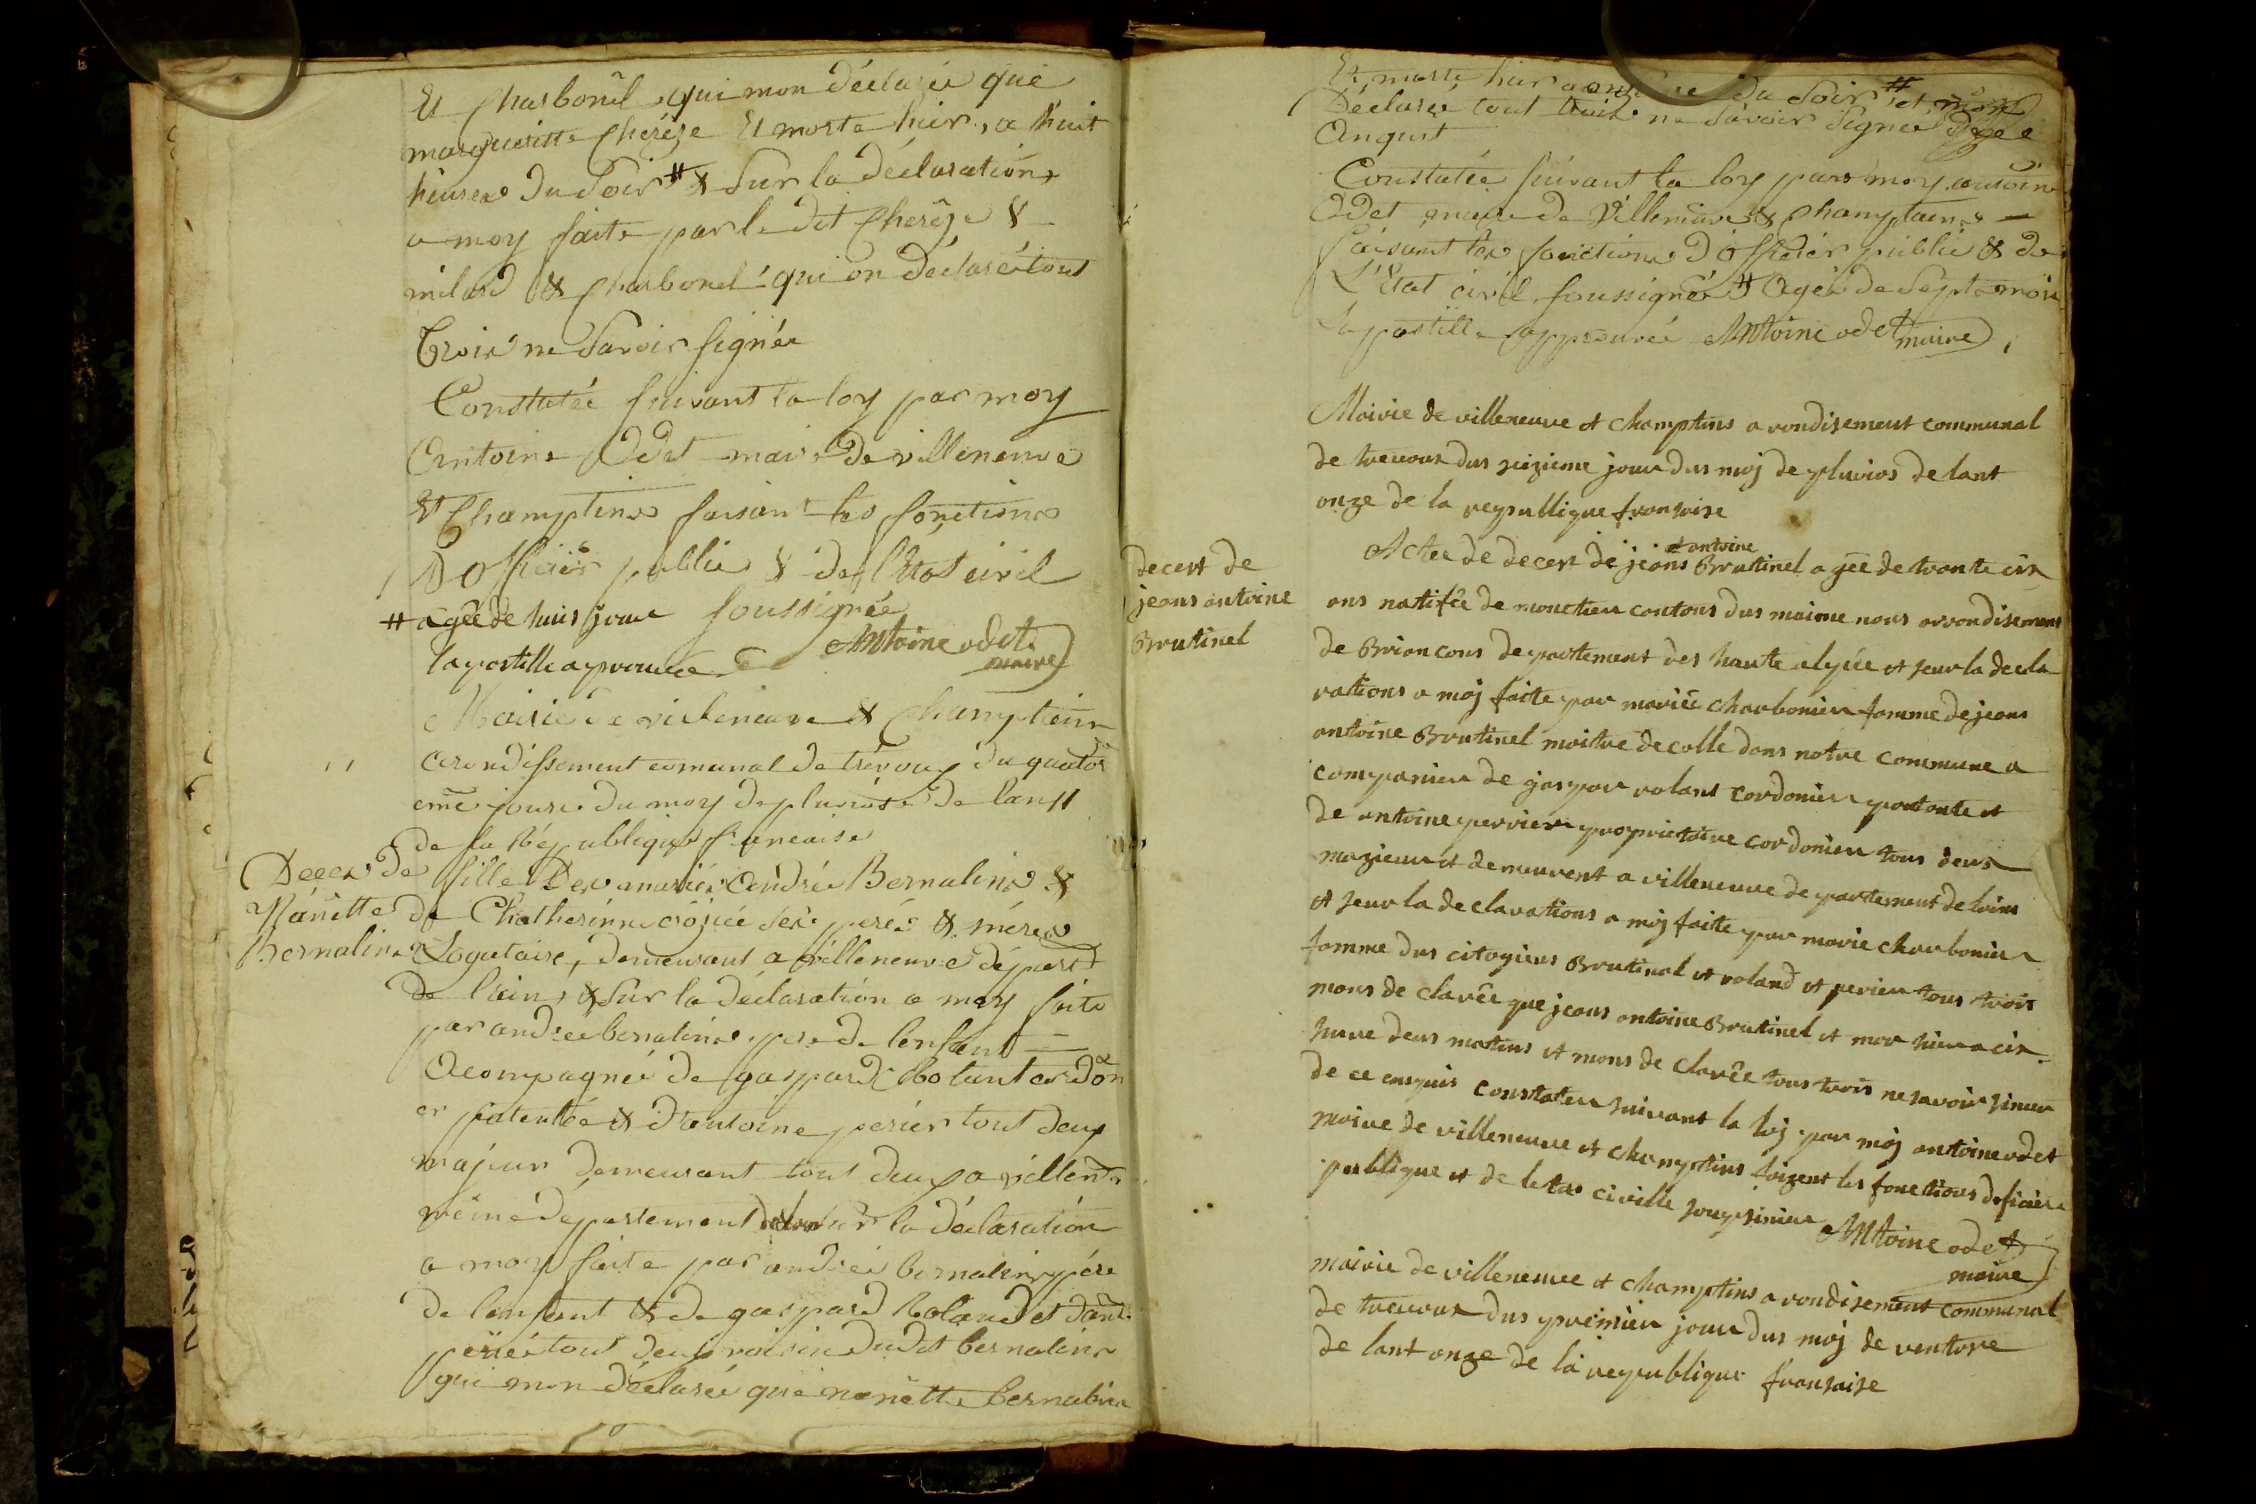 Et Charbonel qui mon déclarée que
margueritte Cheréze Et morte hier, a huit
heures du Soir # & Sur la déclaration
a moy faite par le dit Cheréze &
milard & Charbonel qui on déclaré tout
Trois ne Savoir Signée
Constatée Suivant la loy par moy
Antoine Odet maire de villeneuve
Et Champtins faisant les fonctions
D'officier public & de l'Etat civil
# agée de huis jour soussignée
la postille aprouvée Antoine odet
maire
Mairie de villeneuve & Champteins
arondissement comunal de trévoux du quator
eme jour du moy de pluviose de lan 11
de la République francaise
Decea de fille Des mariés Andrée Bernalins &
Nanette de Chatherinne des peré & mére
Bernalins Logataire, demeurant a villeneuve dépar.t
de l'ain, & Sur la déclaration a moy faite
par andrée bernalins pere de lenfant
Acompagnée de gaspard Rolant cordon
er patentée & d'antoine perier tout deux
majeur demeurant tout deux a villen.ve
même département Sur la déclaration
a moy faite par andrée bernalins pére
de lenfant & de gaspard Roland et dant.
perié tout deux voisin dudit bernalins
qui mon déclarée que nanette bernalins
Et morte hier a du Soir # et
Déclaré tout trois ne Savoir Signée
Enquit
Constatée Suivant la loy par moy antoine
Odet maire de Villeneuve & Champteins
faisant les fonctions D'officiér public & de
L'Etat civil soussignée # Agée de Sept mois
la postille approuvée Antoine odet maire
Mairie de villeneuve et champtins arondisement communal
de trevoux dus seizieme jour dus moj de pluvios de lant
onze de la republlique fransoise
decest de
jeans antoine
Brutinel
antoine
Actee de decest de jeans Brutinel agée de trante cin
ans natifée de monetier contons dus maime nons arrondisemens
de Brioncons departement des haute alpée et seur la decla
rations a moj faite par mariée charbonier famme de jeans
antoine Brutinel maitre de colle dans notre commune a
companier de gaspar rolant cordonier patante et
de antoine perrier proprietaire cordonier tous deux
mazieur et demeurent a villeneuve departement de loins
et seur la declarations a moj faite par marie charbonier
famme dus citogiens Brutinal et roland et perier tous trois
mons de clarée que jeans antoine Brutinel et mor hier a cin
hure deus matins et mons de clarée tous trois ne savoir siner
de ce enquis constater suivant la loj par moj antoine odet
maire de villeneuve et champtins faizent les fonctions deficier
publique et de letat civille sousiner Antoine odet
maire
mairie de villeneuve et champtins arondisement communal
de trevoux dus premier jour dus moj de ventose
de lant onze de la republique fransaise